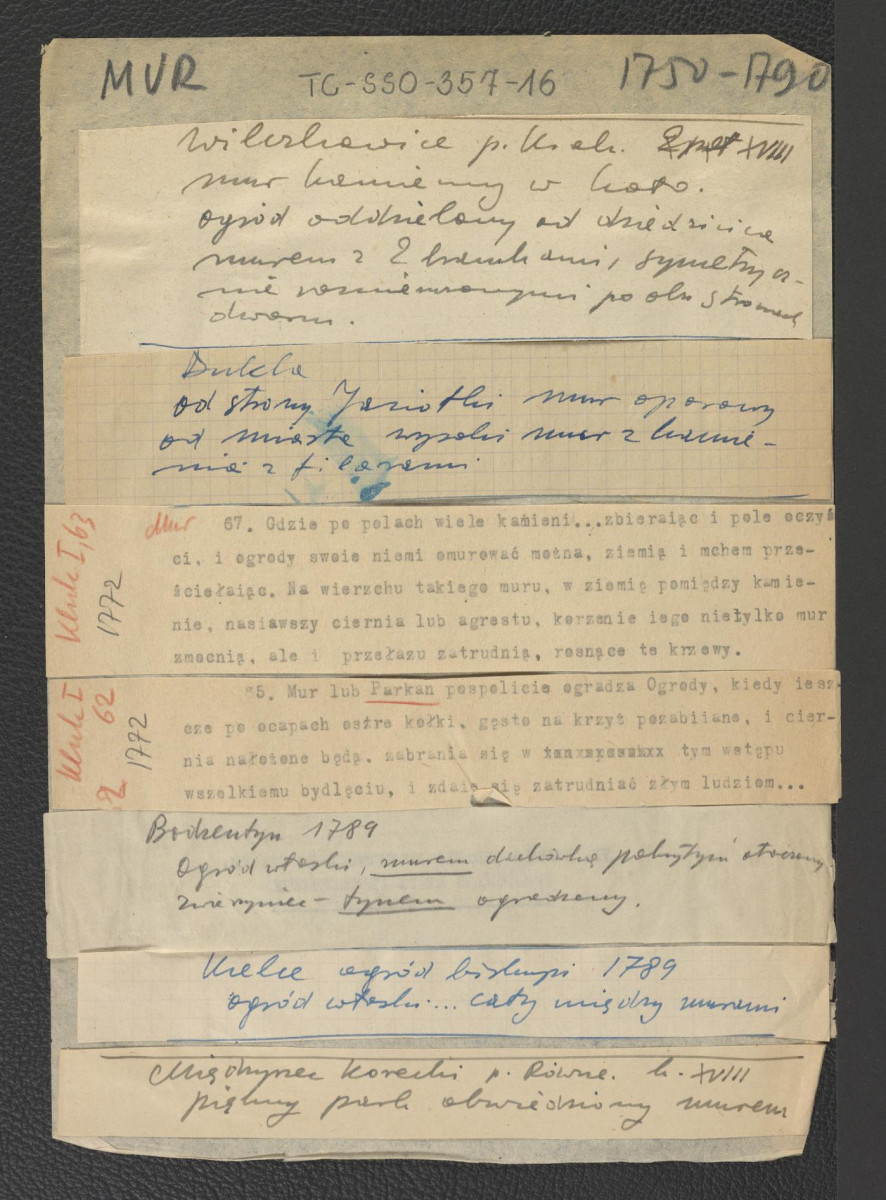 MUR TC-SSO-357-16 1750-1790
Wilczkowice p. Krak. 2 poł XVIII
mur kamienny w koło.
ogród oddzielony od dziedzińca
murem z 2 bramkami, symetrycz-
nie rozmieszczonymi po obu stronach
dworu.
Dukla
od strony Jasiołki mur oporowy
od miasta wysoki mur z kamie-
nia z filarami
Kluk I, 63
1772
Mur 67. Gdzie po polach wiele kamieni...zbieraiąc i pole oczyś
ci, i ogrody swoie niemi omurować można, ziemią i mchem prze-
ściełaiąc. Na wierzchu takiego muru, w ziemię pomiędzy kamie-
nie, nasiawszy ciernia lub agrestu, korzenie iego nietylko mur
zmocnią, ale i przełazu zatrudnią, rosnące te krzewy.
Kluk I
62
1772
65. Mur lub Parkan pospolicie ogradza Ogrody, kiedy iesz-
cze po ocapach ostre kołki, gęsto na krzyż pozabiiane, i cier-
nia nałożone będą, zabrania się w tym wstępu
wszelkiemu bydlęciu, i zdaie się zatrudniać złym ludziom...
Bodzentyn 1789
Ogród włoski, murem dachówką pokrytym otoczony
zwierzyniec - tynem ogrodzony.
Kielce ogród biskupi 1789
ogród włoski... cały między murami
Międzyrzec Korecki p. Równe. k. XVIII
piękny park obwiedziony murem